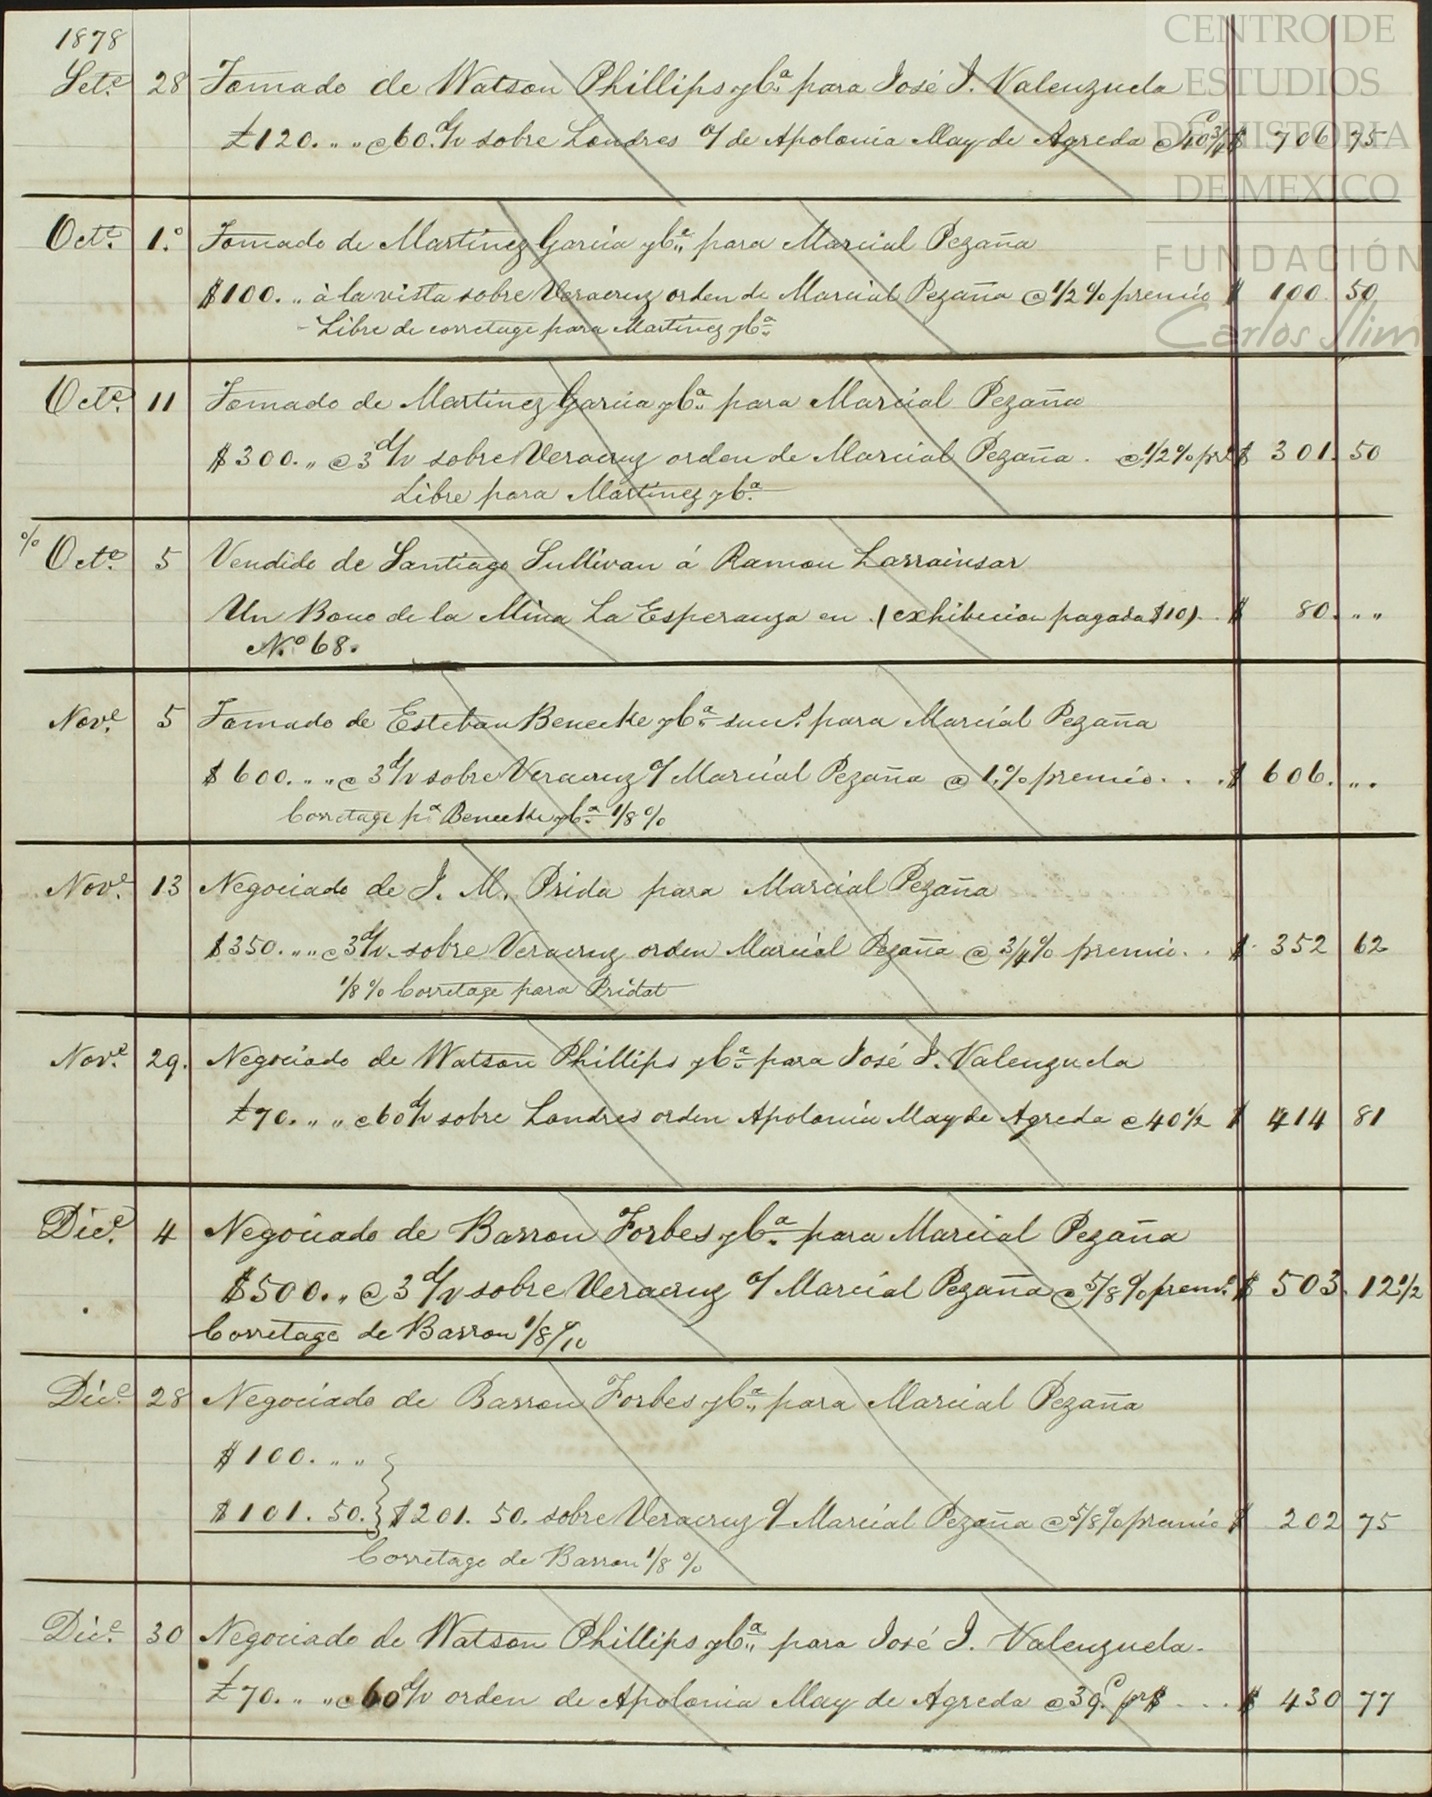 CENTRO DE
ESTUDIOS
DE HISTORIA
DE MEXICO
FUNDACIÓN
Carlos Slim
1878
Sete. 28 Tomado de Watson Phillips y Ca. para José I. Valenzuela
£120. „ „ @ 60. d/v sobre Londres o/ de Apolonia May de Agreda @ 40 3/4 $ 706 75
Octe. 1.º Tomado de Martinez Garcia y Ca. para Marcial Pezaña
$100. „ à la vista sobre Veracruz orden de Marcial Pezaña @ 1/2 % premio $ 100. 50
- Libre de corretage para Martinez y Ca.
Octe. 11 Tomado de Martinez Garcia y Ca. para Marcial Pezaña
$300. „ @ 3 d/v sobre Veracruz orden de Marcial Pezaña. @ 1/2 % pr. $ 301. 50
Libre para Martinez y Ca.
% Octe. 5 Vendido de Santiago Sullivan á Ramon Larrainsar
Un Bono de la Mina La Esperanza en (exhibicion pagada $10) . . $ 80. „ „
N.º 68.
Nove. 5 Tomado de Esteban Benecke y Ca. sucs. para Marcial Pezaña
$600. „ „ @ 3 d/v sobre Veracruz o/ Marcial Pezaña @ 1. % premio. . . . $ 606. „ .
Corretage pa. Benecke y Ca. 1/8 %
Nove. 13 Negociado de J. M. Prida para Marcial Pezaña
$350. „ „ @ 3 d/v sobre Veracruz orden Marcial Pezaña @ 3/4 % premio. . $ 352 62
1/8 % Corretage para Pridat
Nove. 29. Negociado de Watson Phillips y Ca. para José I. Valenzuela
£70. „ „ @ 60 d/v sobre Londres orden Apolonia May de Agreda @ 40 1/2 $ 414 81
Dice. 4 Negociado de Barron Forbes y Ca. para Marcial Pezaña
$500. „ @ 3 d/v sobre Veracruz o/ Marcial Pezaña @ 5/8 % premo. $ 503. 12 1/2
Corretage de Barron 1/8 %
Dice. 28 Negociado de Barron Forbes y Ca. para Marcial Pezaña
$100. „ „
$101. 50. } $201. 50. sobre Veracruz o/ Marcial Pezaña @ 5/8 % premio $ 202 75
Corretage de Barron 1/8 %
Dice. 30 Negociado de Watson Phillips y Ca. para José I. Valenzuela.
£70. „ „ @ 60 d/v orden de Apolonia May de Agreda @ 39. p. pr $ . . . $ 430 77